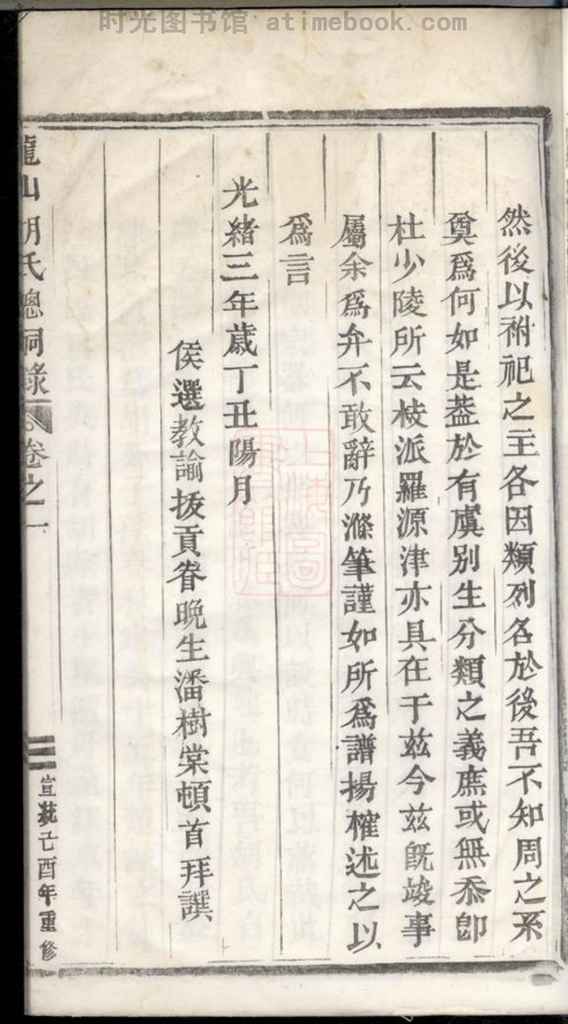 时光图书馆 atimebook.com
然後以祔祀之主各因類列名於後吾不知周之系
奠爲何如是葢於有虞别生分類之義庶或無忝卽
杜少陵所云枝派羅源津亦具在于兹今兹旣竣事
屬余爲弁不敢辭乃滌筆謹如所爲譜揚榷述之以
爲言
光緒三年歲丁丑陽月
侯選教諭拔貢眷晚生潘樹棠頓首拜譔
龍山胡氏總祠錄 卷之一
三
宣統己酉年重修